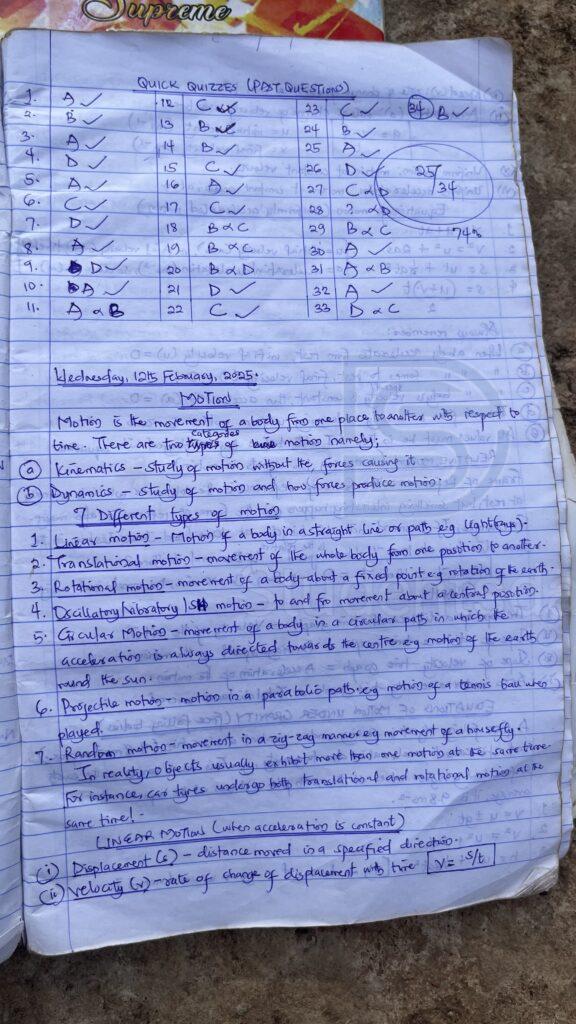 Supreme
QUICK QUIZZES (PAST QUESTIONS)
1. A ✓ 12 C 23 C ✓ 34 B ✓
2. B ✓ 13 B 24 B ✓
3. A ✓ 14 B ✓ 25 A ✓
4. D ✓ 15 C ✓ 26 D ✓ 25/34
5. A ✓ 16 A ✓ 27 C ∝ D
6. C ✓ 17 C ✓ 28 ? ∝ D
7. D ✓ 18 B ∝ C 29 B ∝ C 74%
8. A ✓ 19 B ∝ C 30 A ✓
9. D ✓ 20 B ∝ D 31 A ∝ B
10. A ✓ 21 D ✓ 32 A ✓
11. A ∝ B 22 C ✓ 33 D ∝ C
Wednesday, 12th February, 2025.
MOTION
Motion is the movement of a body from one place to another with respect to
categories
time. There are two types of motion namely;
(a) Kinematics – study of motion without the forces causing it
(b) Dynamics – study of motion and how forces produce motion.
7 Different types of motion
1. Linear motion – Motion of a body in a straight line or path e.g Light (rays).
2. Translational motion – movement of the whole body from one position to another.
3. Rotational motion – movement of a body about a fixed point e.g rotation of the earth.
4. Oscillatory/vibratory/SH motion – to and fro movement about a central position.
5. Circular Motion – movement of a body in a circular path in which the
acceleration is always directed towards the centre e.g motion of the earth
round the sun.
6. Projectile motion – motion in a parabolic path. e.g motion of a tennis ball when
played.
7. Random motion – movement in a zig-zag manner e.g movement of a housefly.
In reality, objects usually exhibit more than one motion at the same time.
For instance, car tyres undergo both translational and rotational motion at the
same time!
LINEAR MOTION (when acceleration is constant)
(i) Displacement (s) – distance moved in a specified direction.
(ii) Velocity (v) – rate of change of displacement with time V = s/t